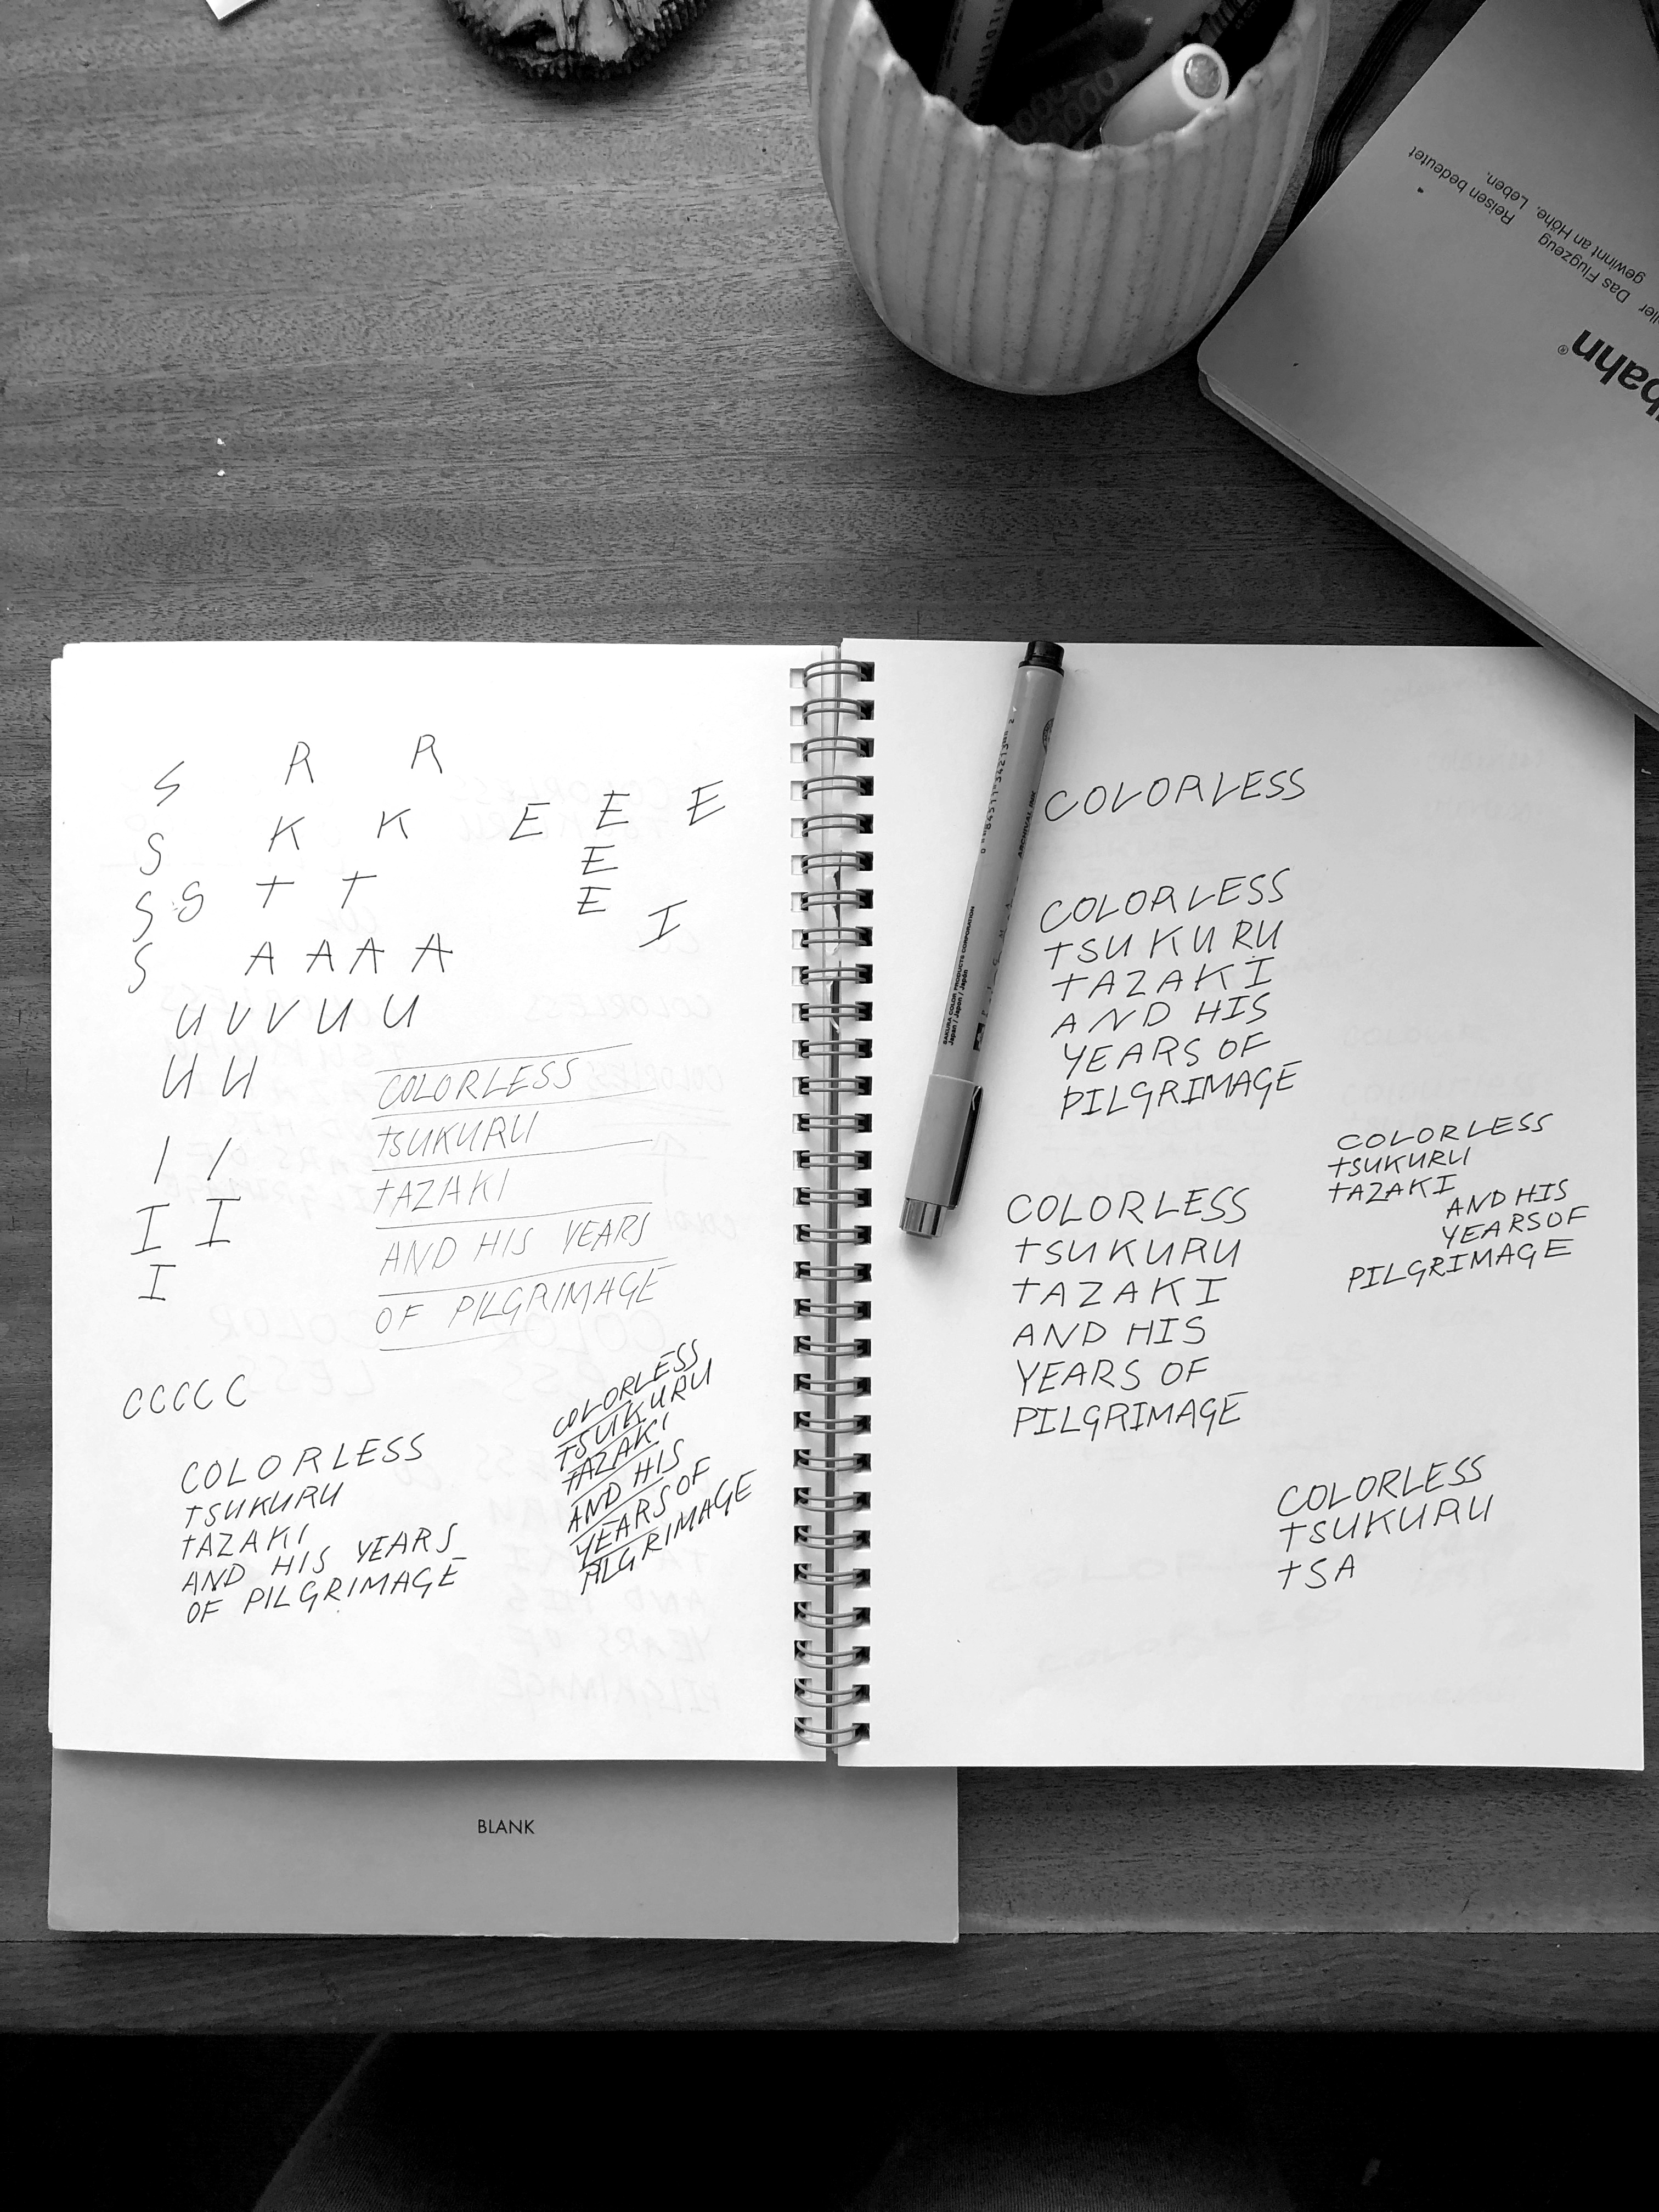 Reisen bedeutet
Leben.
Das Flugzeug
gewinnt an Höhe,
bahn®
S R R
S K K E E E
E
S S T T E
I
S A A A A
U U V U U
U U
I I
I I
I
COLORLESS
TSUKURU
TAZAKI
AND HIS YEARS
OF PILGRIMAGE
CCCCC
COLORLESS
TSUKURU
TAZAKI
AND HIS YEARS
OF PILGRIMAGE
COLORLESS
TSUKURU
TAZAKI
AND HIS
YEARS OF
PILGRIMAGE
BLANK
ARCHIVAL INK
SAKURA COLOR PRODUCTS CORPORATION
Japan / Japon / Japón
COLORLESS
COLORLESS
TSUKURU
TAZAKI
AND HIS
YEARS OF
PILGRIMAGE
COLORLESS
TSUKURU
TAZAKI
AND HIS
YEARS OF
PILGRIMAGE
COLORLESS
TSUKURU
TAZAKI
AND HIS
YEARS OF
PILGRIMAGE
COLORLESS
TSUKURU
TSA